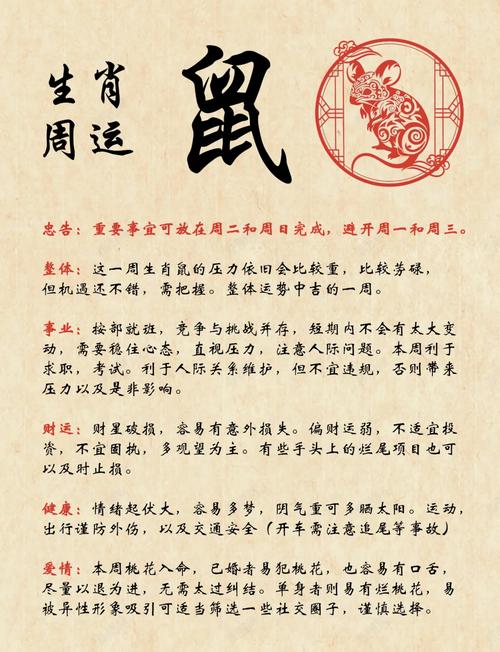 生肖
周运
鼠
忠告：重要事宜可放在周二和周日完成，避开周一和周三。
整体：这一周生肖鼠的压力依旧会比较重，比较劳碌，
但机遇还不错，需把握。整体运势中吉的一周。
事业：按部就班，竞争与挑战并存，短期内不会有太大变
动，需要稳住心态，直视压力，注意人际问题。本周利于
求职，考试。利于人际关系维护，但不宜违规，否则带来
压力以及是非影响。
财运：财星破损，容易有意外损失。偏财运弱，不适宜投
资，不宜固执，多观望为主。有些手头上的烂尾项目也可
以及时止损。
健康：情绪起伏大，容易多梦，阴气重可多晒太阳。运动，
出行谨防外伤，以及交通安全（开车需注意追尾等事故）
爱情：本周桃花入命，已婚者易犯桃花，也容易有口舌，
尽量以退为进，无需太过纠结。单身者则易有烂桃花，易
被异性形象吸引可适当筛选一些社交圈子，谨慎选择。